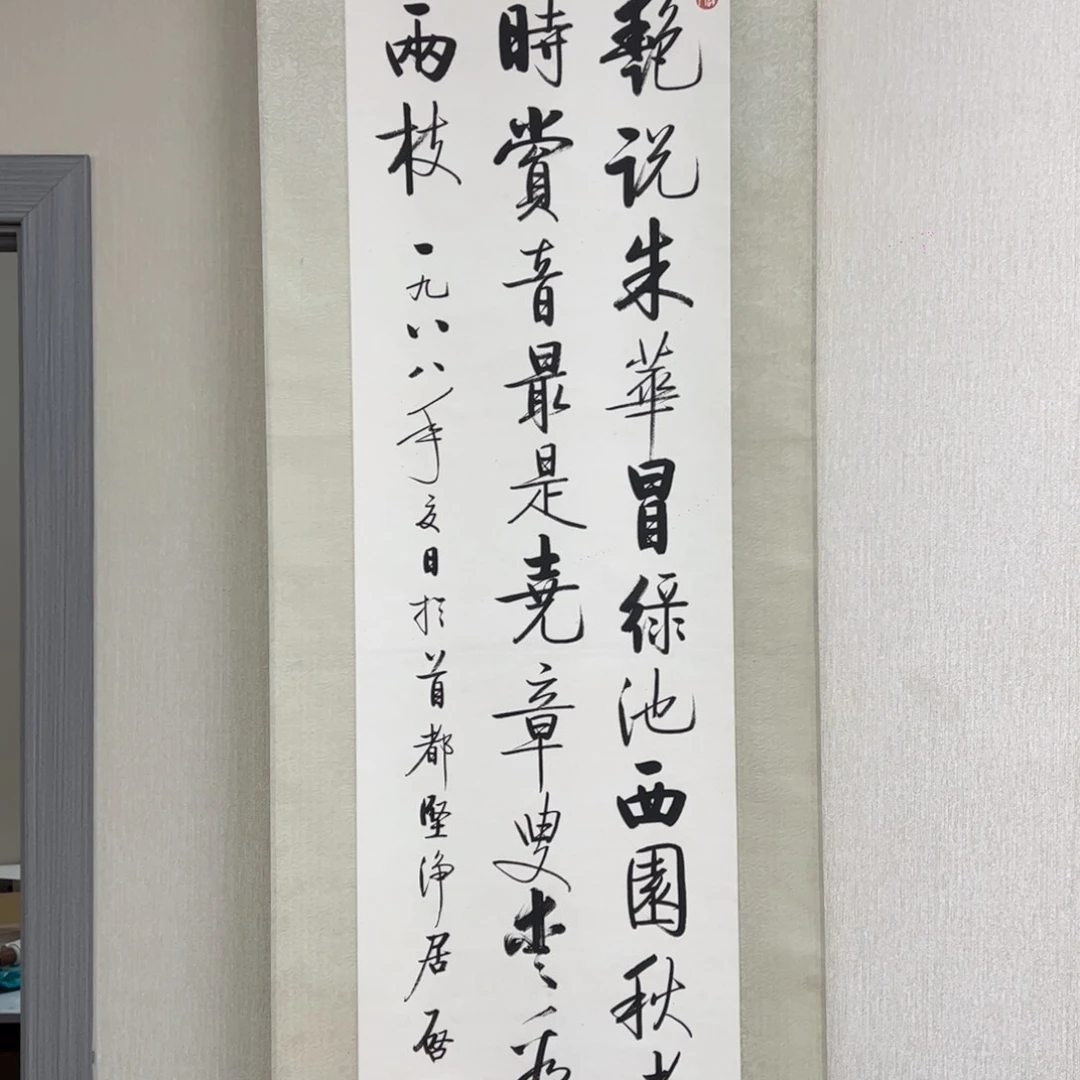 艷说朱華冒緑池西園秋
時賞音最是堯章叟
兩枝 一九八八年夏日於首都堅淨居 啓